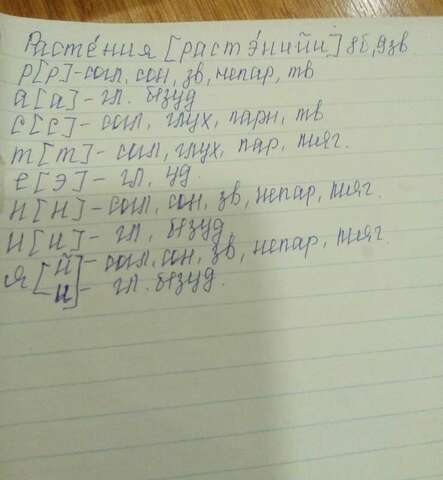 Расте́ния [растэ́нийи] 8б, 9зв
р[р]-согл, сон, зв, непар, тв
а[а]-гл. безуд
с[с]-согл, глух, парн, тв
т[т]-согл, глух, пар, мяг.
е[э]-гл, уд.
н[н]-согл, сон, зв, непар, мяг.
и[и]-гл, безуд
я[й]-согл, сон, зв, непар, мяг.
[и]-гл. безуд.